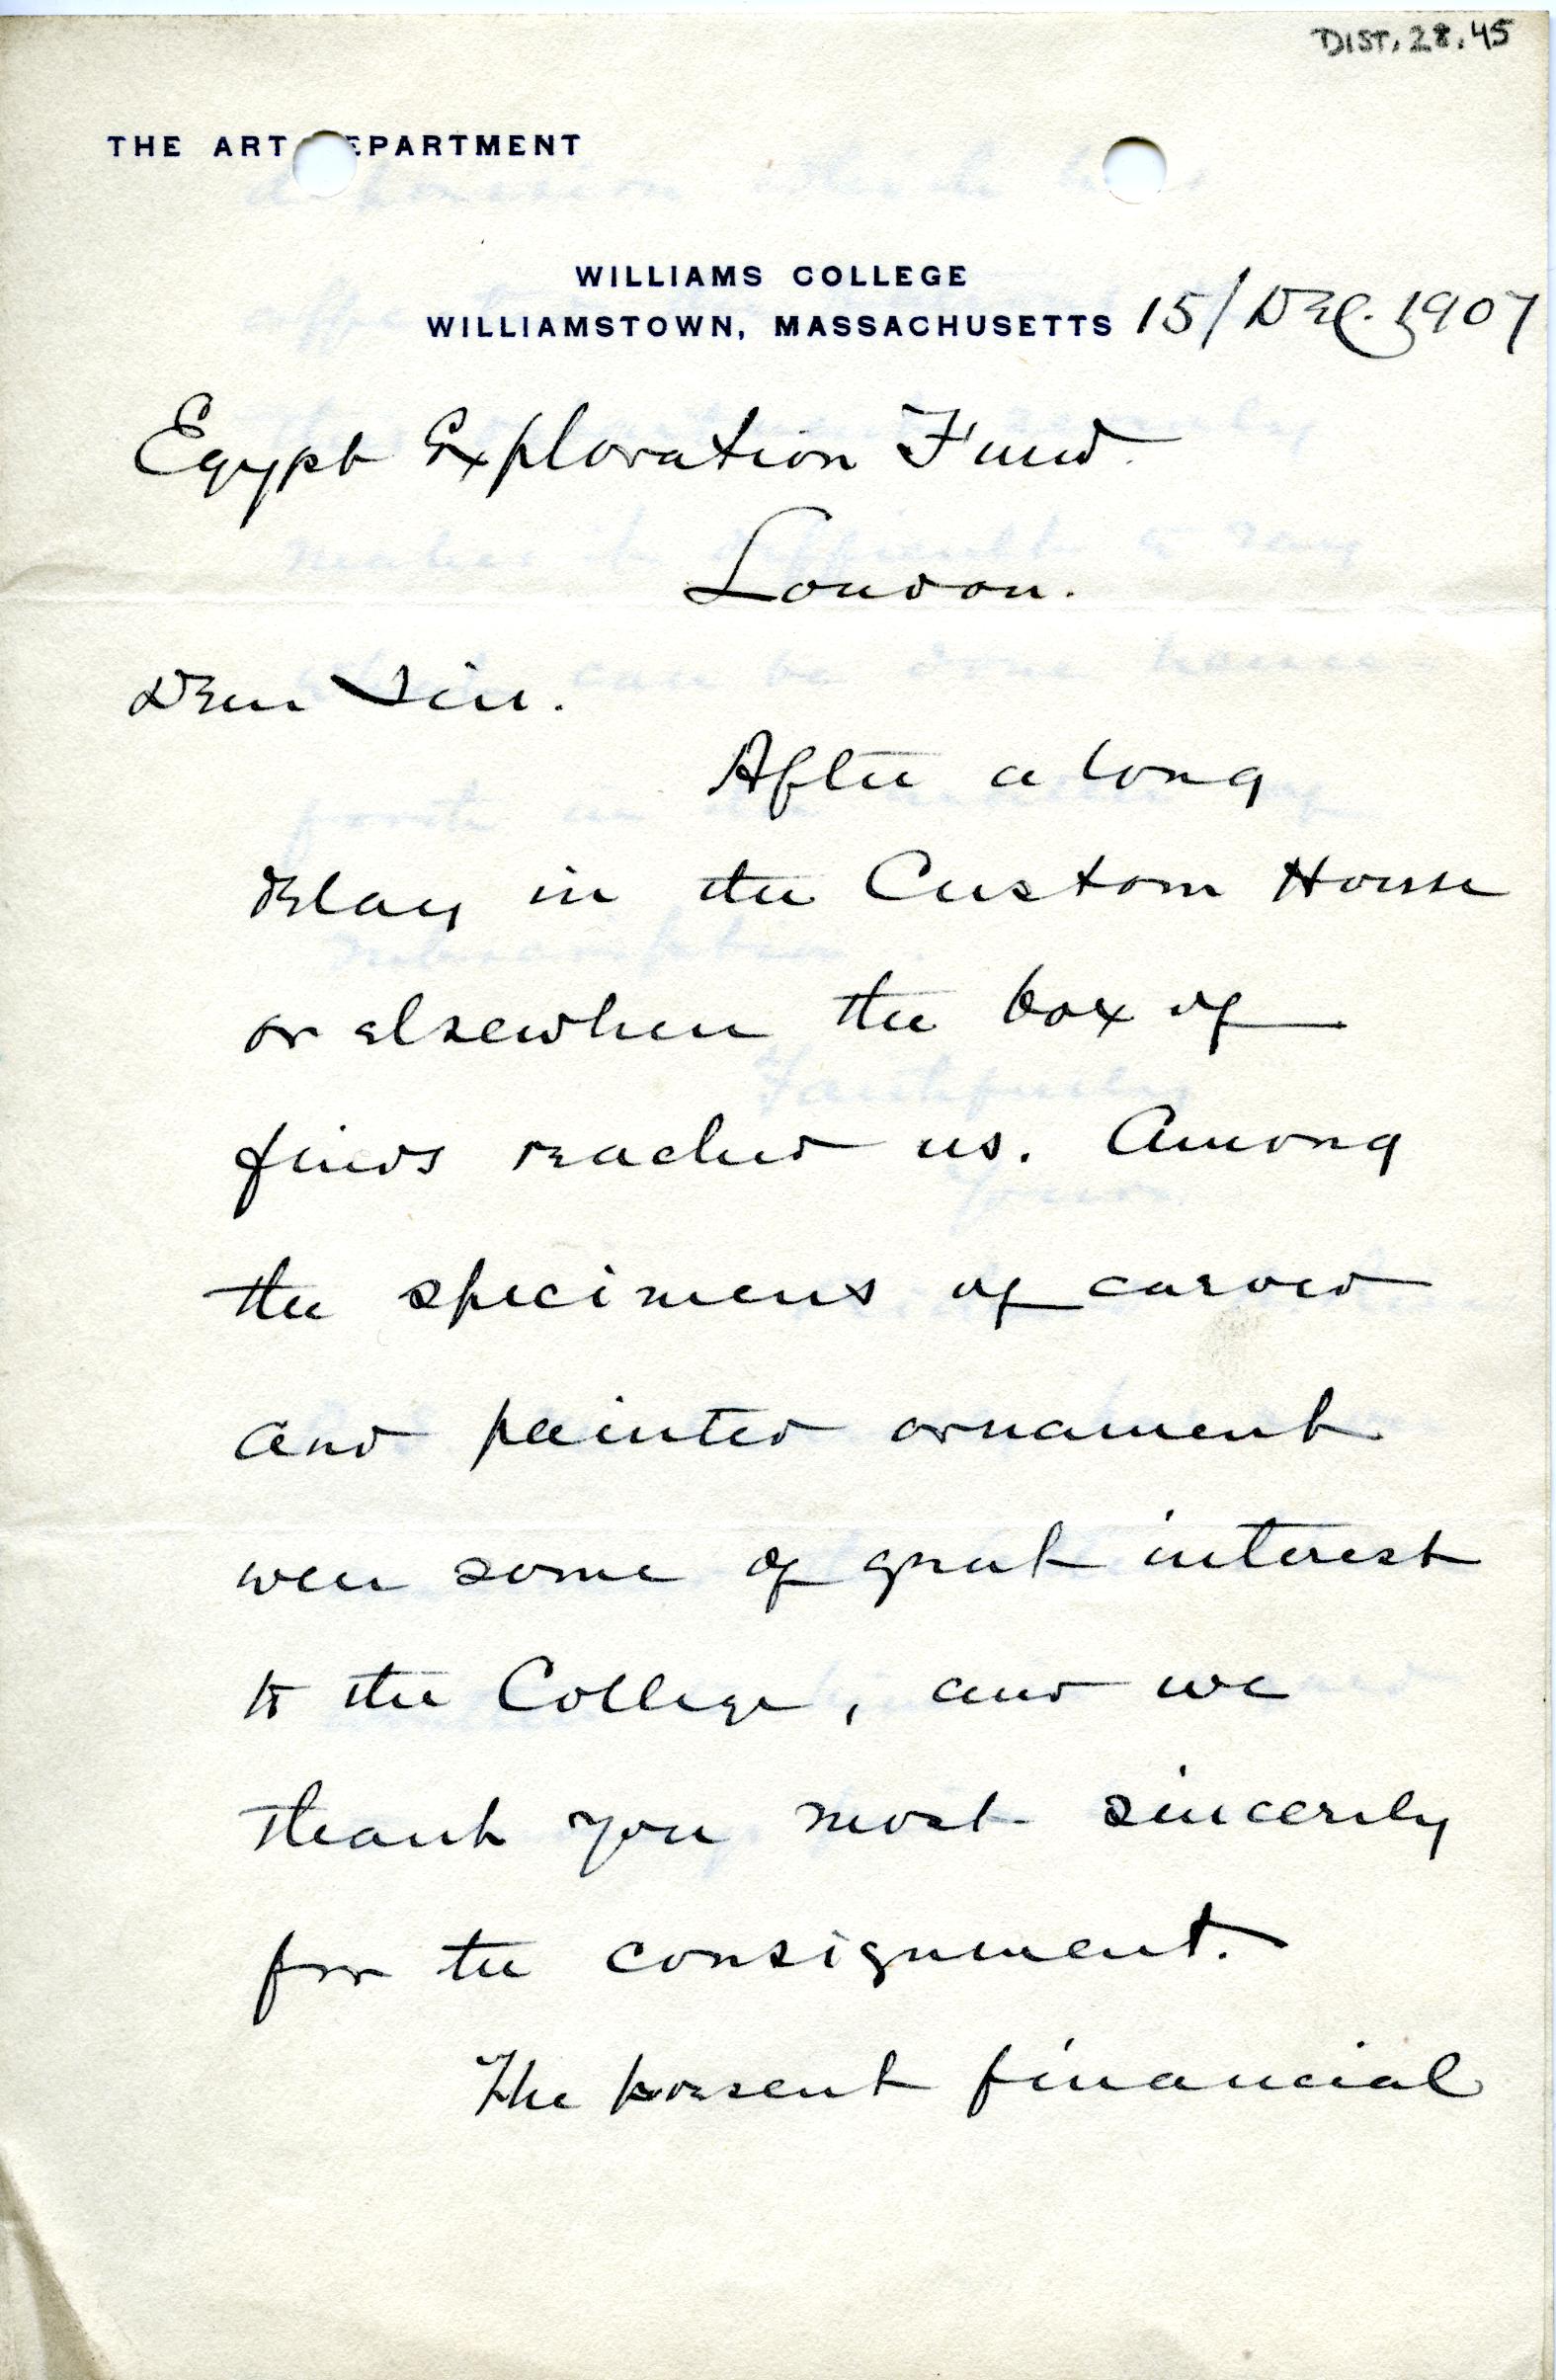 DIST. 28.45
THE ART DEPARTMENT
WILLIAMS COLLEGE
WILLIAMSTOWN, MASSACHUSETTS 15/Dec. 1907
Egypt Exploration Fund.
London.
Dear Sir.
After a long
delay in the Custom House
or elsewhere the box of
finds reached us. Among
the specimens of carved
and painted ornament
were some of great interest
to the College, and we
thank you most sincerely
for the consignment.
The present financial